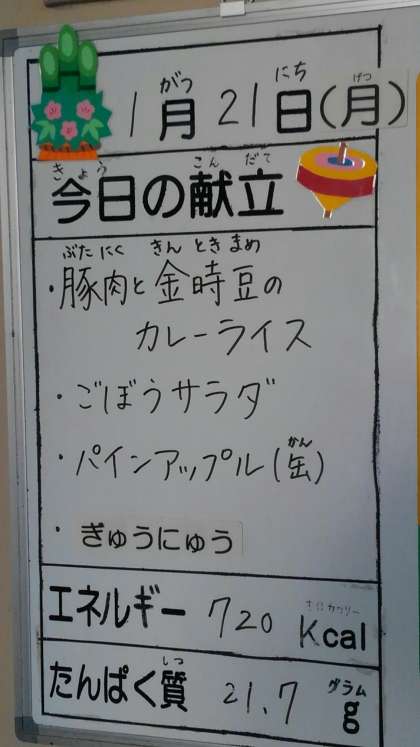 がつ にち げつ
1月21日(月)
きょう こん だて
今日の献立
ぶたにく きんときまめ
・豚肉と金時豆の
カレーライス
・ごぼうサラダ
かん
・パインアップル(缶)
・ぎゅうにゅう
キロカロリー
エネルギー 720 Kcal
しつ グラム
たんぱく質 21.7 g